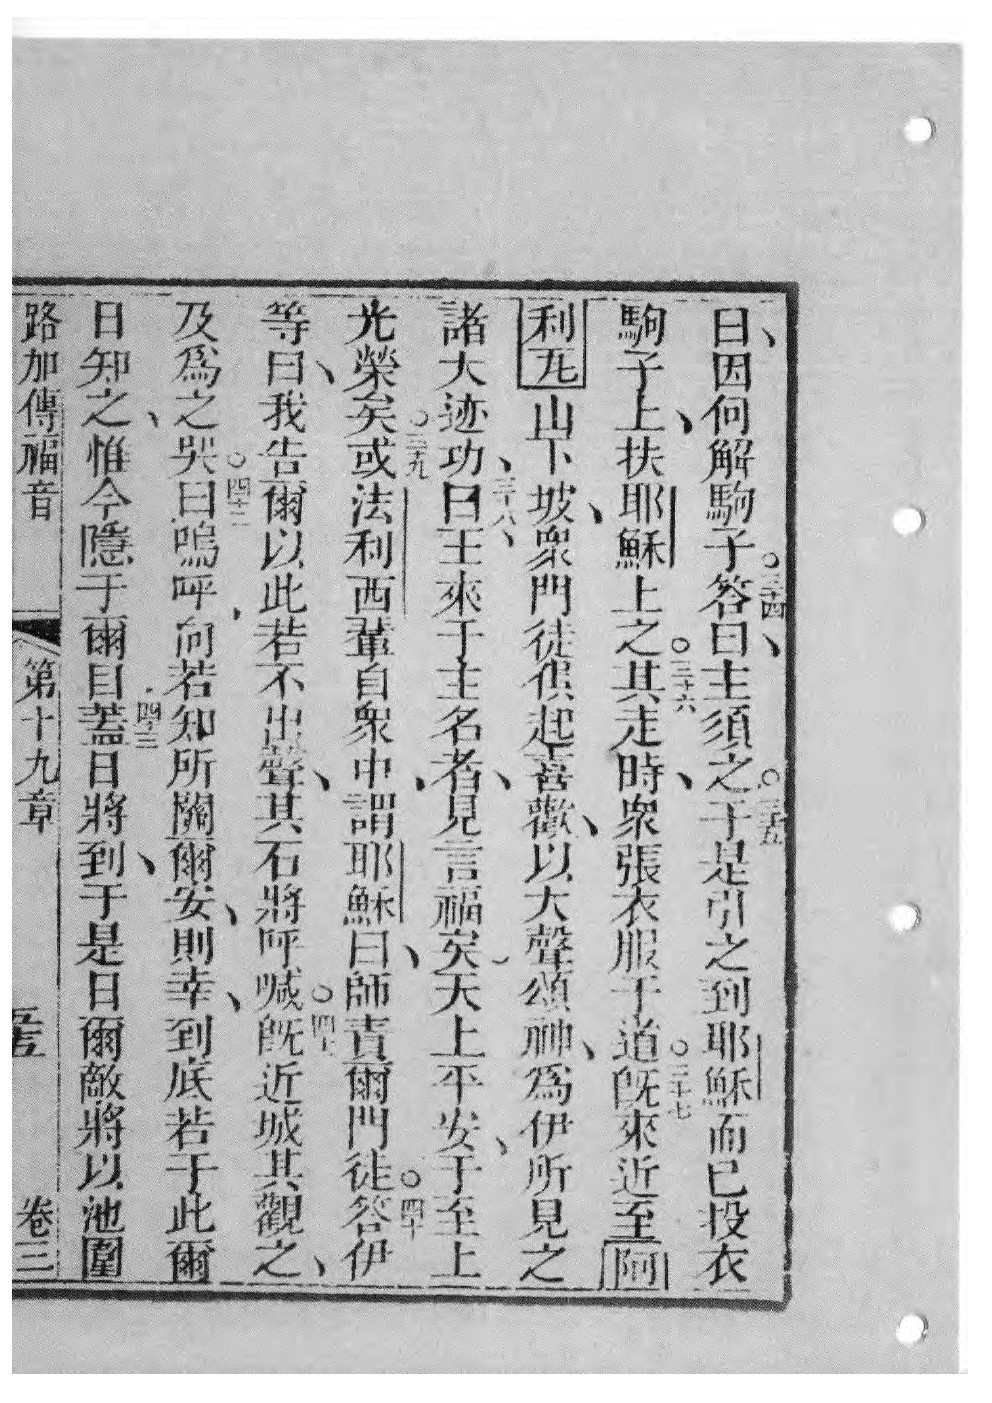 曰因何解駒子答曰主須之于是引之到耶穌而已投衣
三十四
三十五
駒子上扶耶穌上之其走時衆張衣服于道旣來近至阿
三十六
三十七
利瓦山下坡衆門徒俱起喜歡以大聲頌神爲伊所見之
諸大迹功曰王來于主名者見言福矣天上平安于至上
三十八
光榮矣或法利西輩自衆中謂耶穌曰師責爾門徒答伊
三十九
四十
等曰我告爾以此若不出聲其石將呼喊旣近城其觀之
四十一
及爲之哭曰嗚呼向若知所關爾安則幸到底若于此爾
四十二
日知之惟今隱于爾目蓋日將到于是日爾敵將以池圍
四十三
路加傳福音 第十九章 卷三